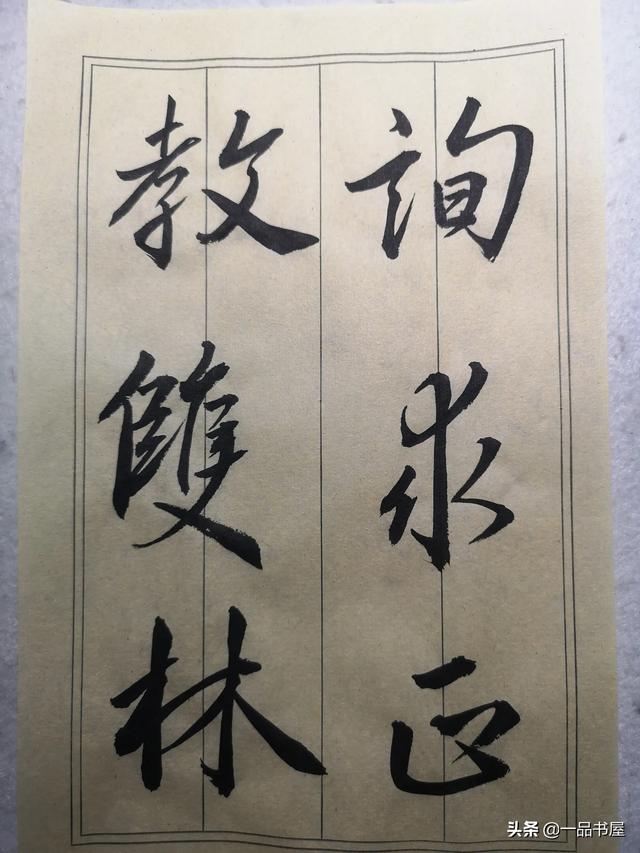 詢求正
教雙林
头条 @一品书屋